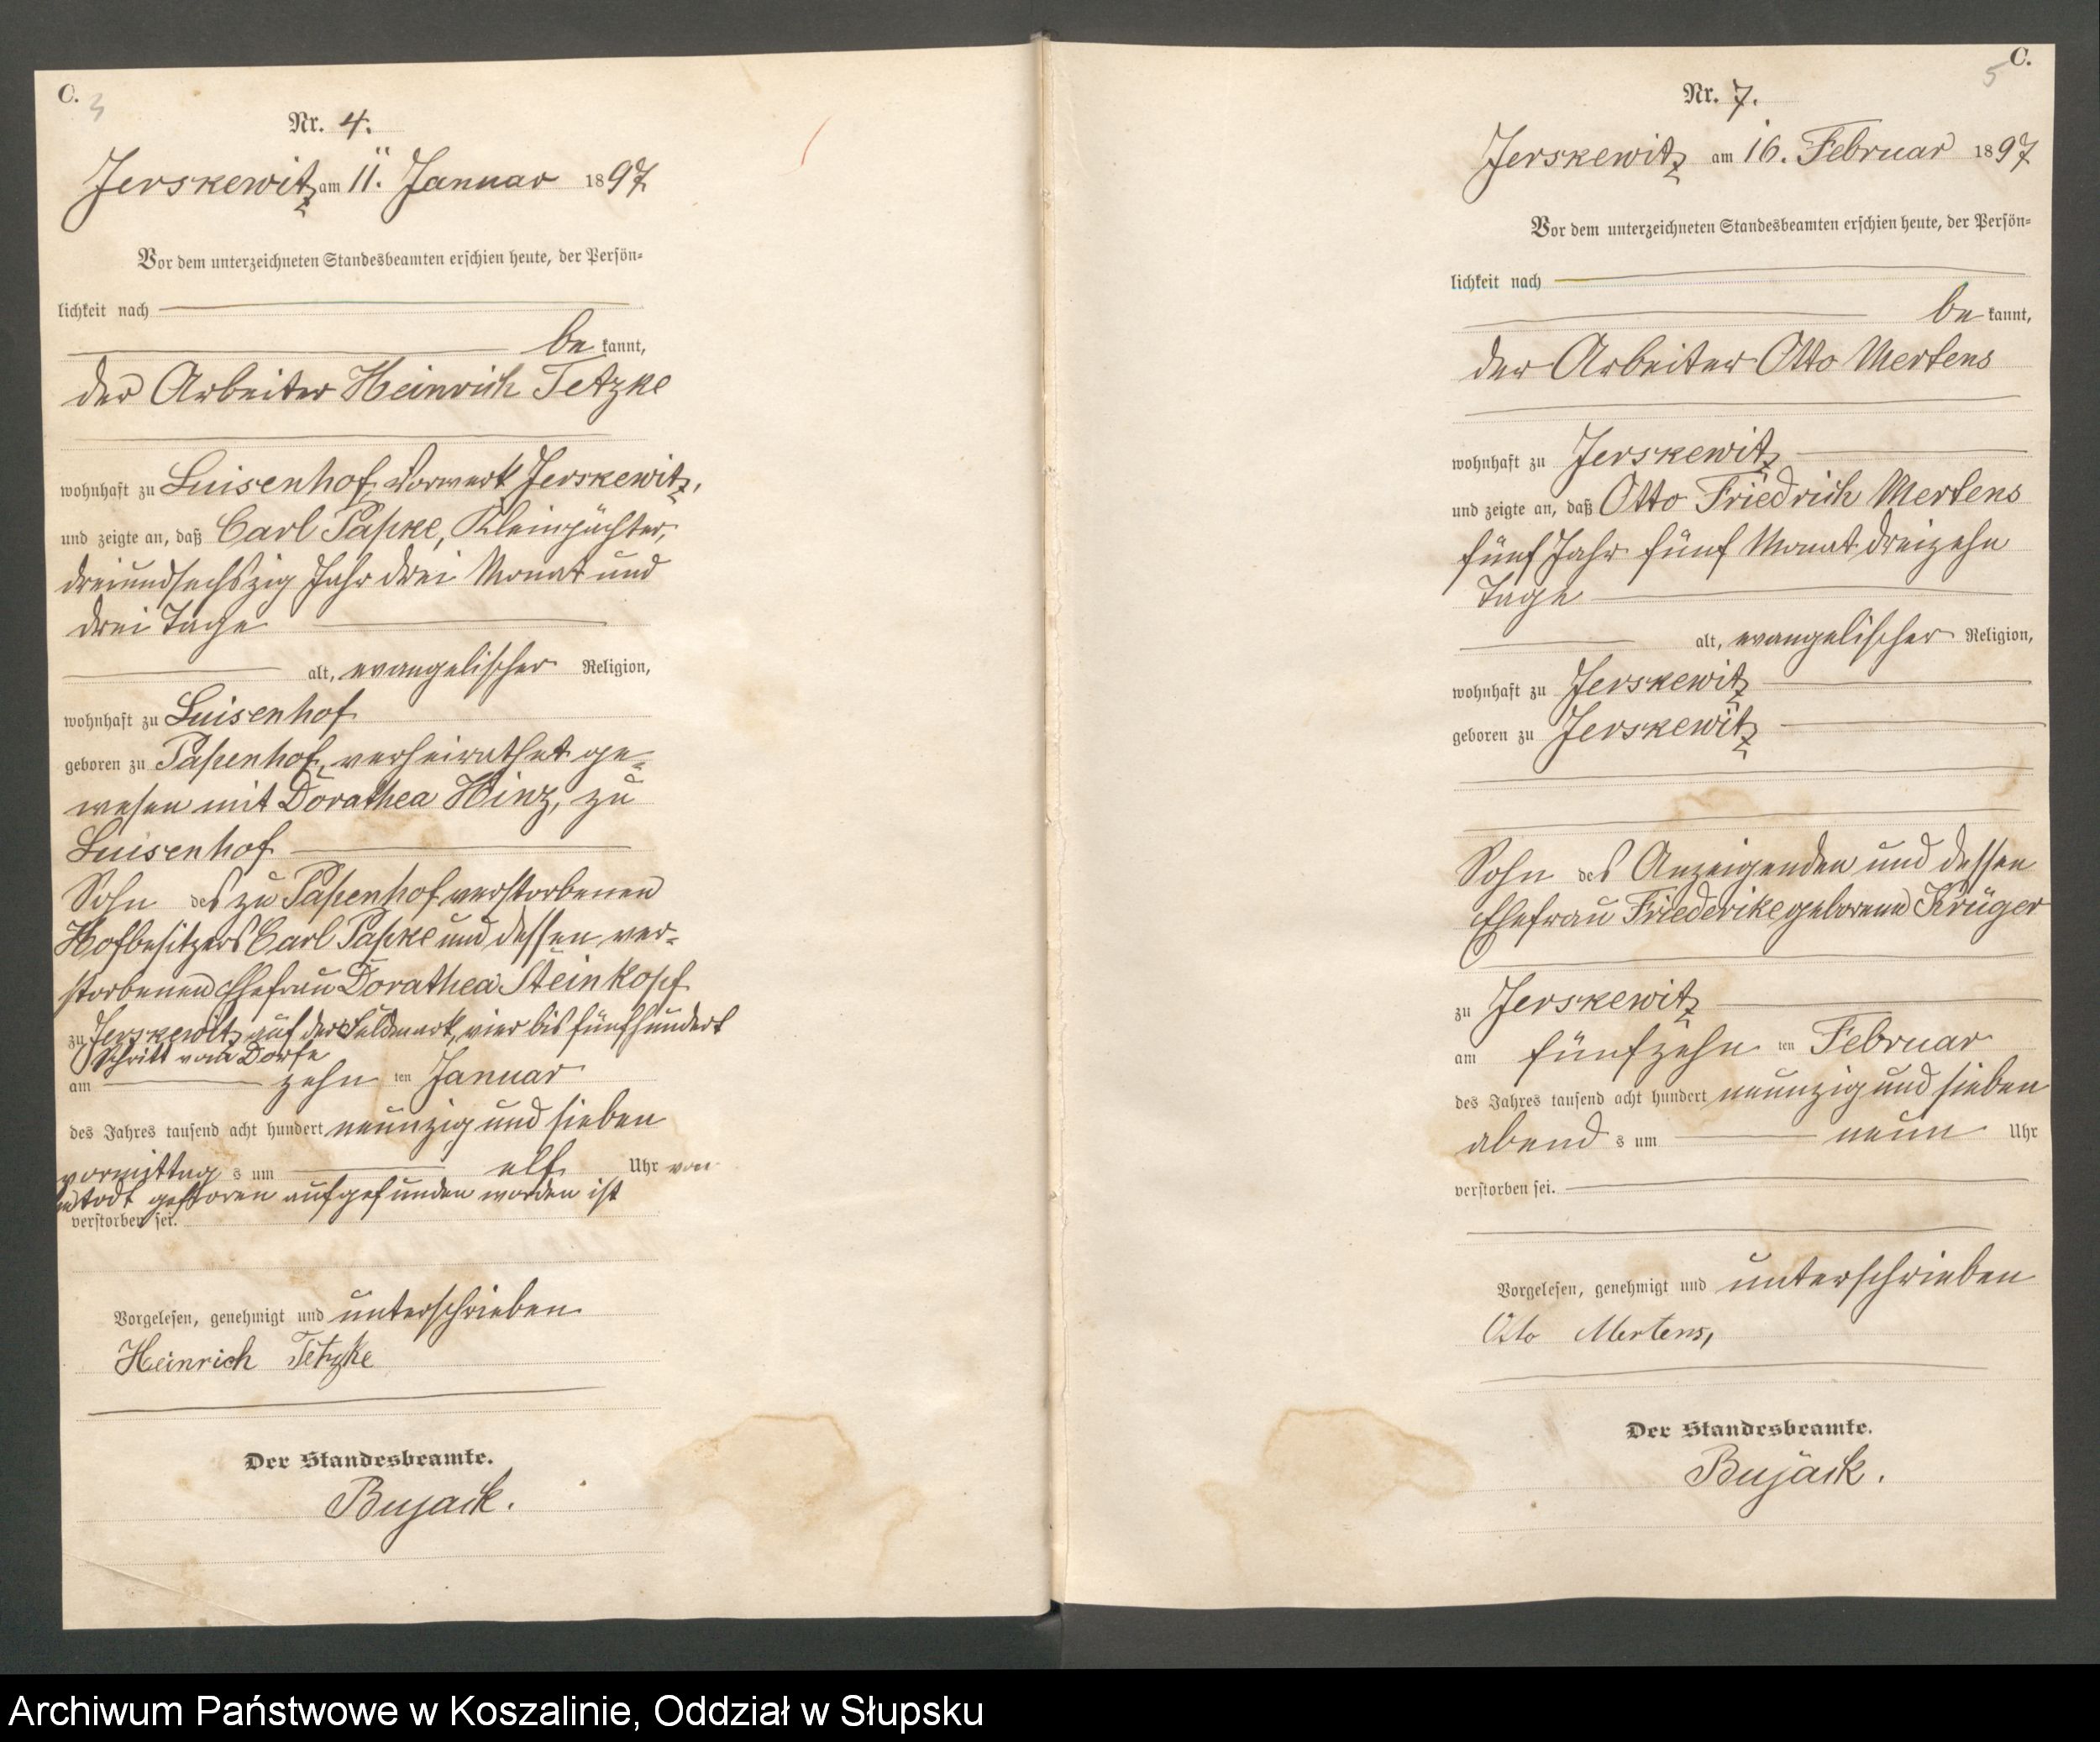 C. 3
Nr. 4.
Jerskewitz am 11. Januar 1897
Vor dem unterzeichneten Standesbeamten erschien heute, der Persön-
lichkeit nach
be kannt,
der Arbeiter Heinrich Tetzke
wohnhaft zu Luisenhof, Vorwerk Jerskewitz,
und zeigte an, daß Carl Papke, Kleinpächter,
dreiundsechszig Jahr drei Monat und
drei Tage
alt, evangelischer Religion,
wohnhaft zu Luisenhof
geboren zu Papenhof, verheirathet ge-
wesen mit Dorathea Hinz, zu
Luisenhof
Sohn des zu Papenhof verstorbenen
Hofbesitzers Carl Papke und dessen ver-
storbenen Ehefrau Dorathea Steinkopf
zu Jerskewitz auf der Feldmark, vier bis fünfhundert
Schritt vom Dorfe
am zehn ten Januar
des Jahres tausend acht hundert neunzig und sieben
vormittag s um elf Uhr von
todt gefroren aufgefunden worden ist
verstorben sei.
Vorgelesen, genehmigt und unterschrieben
Heinrich Tetzke
Der Standesbeamte.
Bujack.
C. 5
Nr. 7.
Jerskewitz am 16. Februar 1897
Vor dem unterzeichneten Standesbeamten erschien heute, der Persön-
lichkeit nach
be kannt,
der Arbeiter Otto Mertens
wohnhaft zu Jerskewitz
und zeigte an, daß Otto Friedrich Mertens
fünf Jahr fünf Monat dreizehn
Tage
alt, evangelischer Religion,
wohnhaft zu Jerskewitz
geboren zu Jerskewitz
Sohn des Anzeigenden und dessen
Ehefrau Friederike geborene Krüger
zu Jerskewitz
am fünfzehn ten Februar
des Jahres tausend acht hundert neunzig und sieben
abend s um neun Uhr
verstorben sei.
Vorgelesen, genehmigt und unterschrieben
Otto Mertens,
Der Standesbeamte.
Bujack.
Archiwum Państwowe w Koszalinie, Oddział w Słupsku